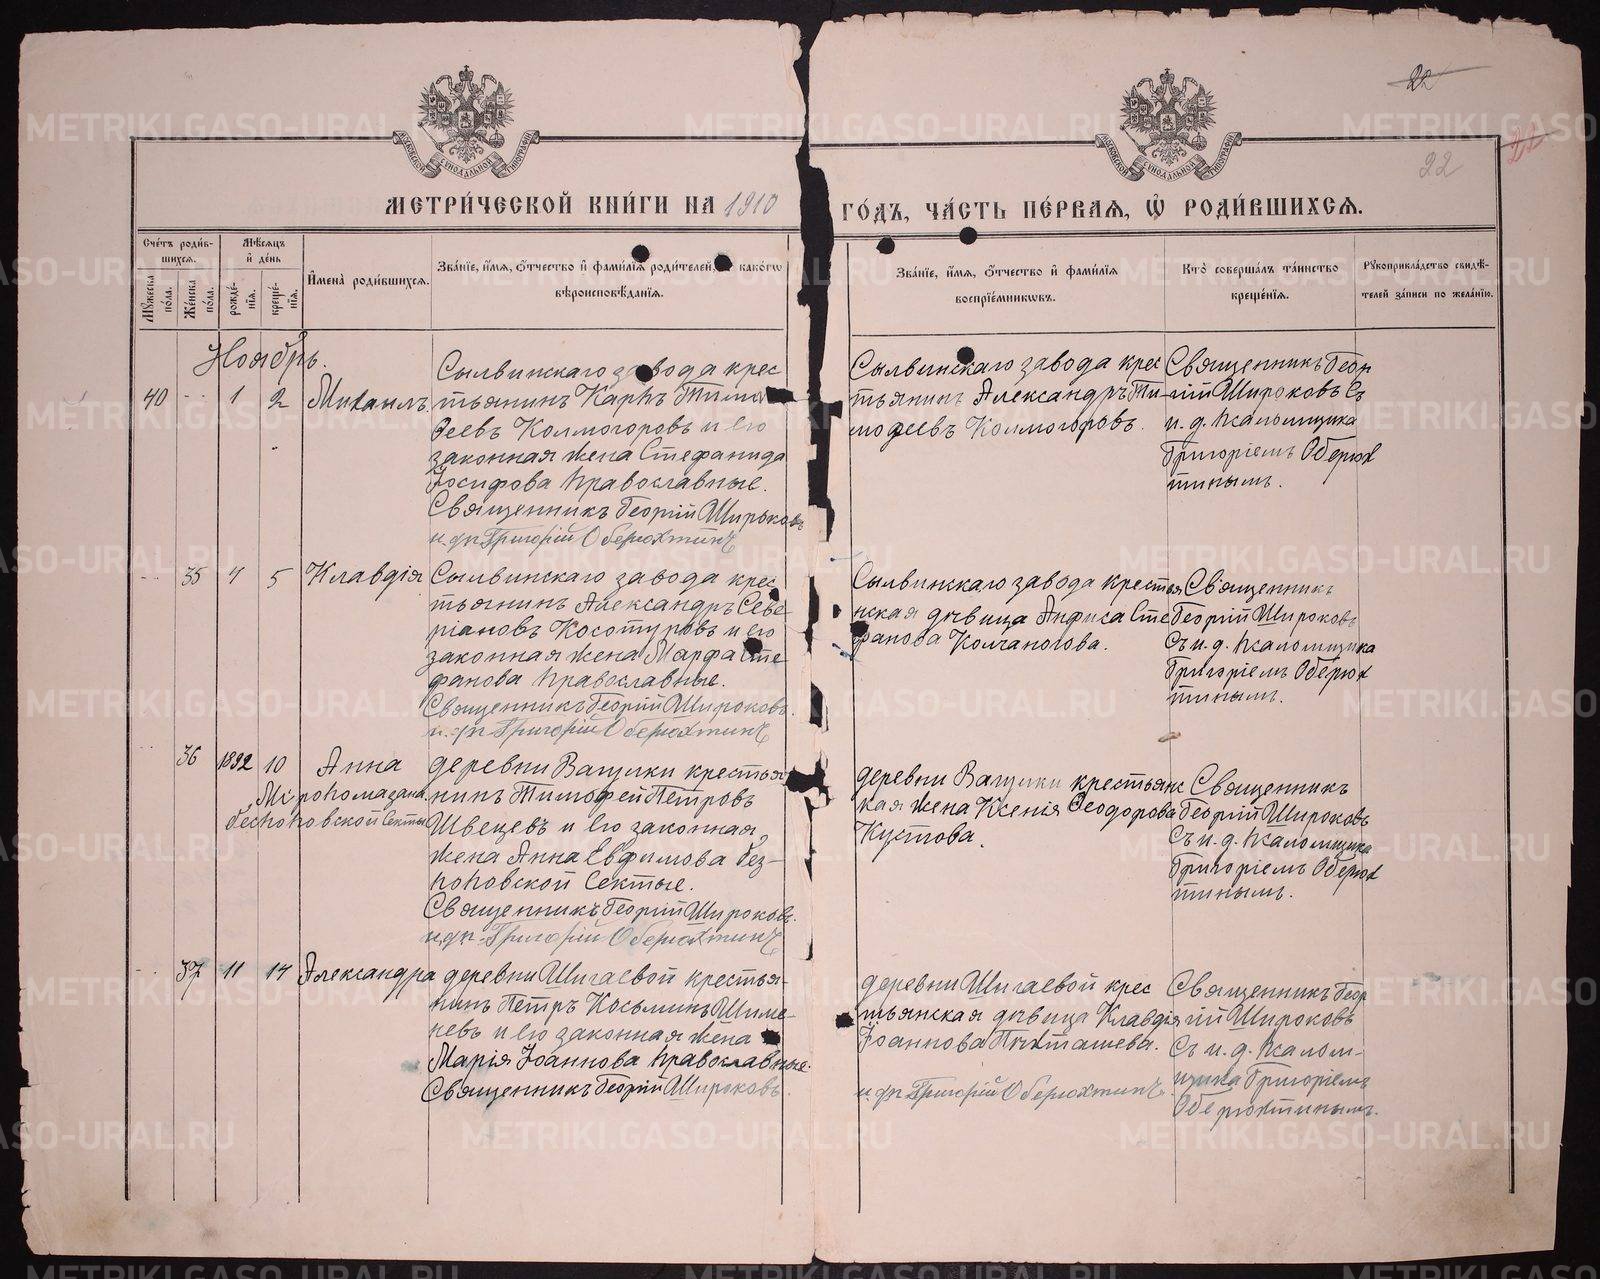 22
22
22
МОСКОВСКОЙ СѴНОДАЛЬНОЙ ТИПОГРАФІИ
МОСКОВСКОЙ СѴНОДАЛЬНОЙ ТИПОГРАФІИ
МЕТРИ́ЧЕСКОЙ КНИ́ГИ НА 1910 ГО́ДЪ, ЧА́СТЬ ПЕ́РВАЯ, Ѡ РОДИ́ВШИХСЯ.
Сче́тъ роди́в-
шихся.
Мѣ́сяцъ
и҆ де́нь
Мꙋ́жеска
по́ла.
Же́нска
по́ла.
рожде́-
нїя.
креще́-
нїя.
И҆мена̀ роди́вшихся.
Зва́нїе, и҆́мя, ѻ҆́тчество и҆ фами́лїя роди́телей, и҆ како́гѡ
вѣроисповѣ́данїя.
Зва́нїе, и҆́мя, ѻ҆́тчество и҆ фами́лїя
воспрїе́мникѡвъ.
Кто̀ соверша́лъ та́инство
креще́нїя.
Рꙋкоприкла́дство свидѣ́-
телей за́писи по жела́нїю.
Ноябрь.
40 - 1 2 Михаилъ.
Сылвинскаго завода крес
тьянинъ Карпъ Тимо
ѳеевъ Колмогоровъ и его
законная жена Стефанида
Іосифова Православные.
Священникъ Георгій Широковъ
и.д.п. Григорій Оберюхтинъ
Сылвинскаго завода крес
тьянинъ Александръ Ти-
моѳеевъ Колмогоровъ.
Священникъ Геор
гій Широковъ Съ
и. д. Псаломщика
Григоріемъ Оберюх
тинымъ.
- 35 4 5 Клавдія
Сылвинскаго завода крес
тьянинъ Александръ Севе
ріановъ Косотуровъ и его
законная жена Марфа Сте
фанова Православные.
Священникъ Георгій Широковъ.
и.д.п. Григорій Оберюхтинъ
Сылвинскаго завода крестья
нская дѣвица Анфиса Сте
фанова Колчаногова.
Священникъ
Георгій Широковъ
Съ и. д. Псаломщика
Григоріемъ Оберюх
тинымъ.
36 1892 10 Анна
Мѵропомазана
безпоповской Секты
деревни Вагулки крестья
нинъ Тимофей Петровъ
Швецевъ и его законная
жена Анна Евфимова без-
поповской Секты.
Священникъ Георгій Широковъ.
и.д.п. Григорій Оберюхтинъ
деревни Вагулки крестьянс
кая жена Ксенія Ѳеодорова
Кустова.
Священникъ
Георгій Широковъ
Съ и. д. Псаломщика
Григоріемъ Оберюх
тинымъ.
- 37 11 14 Александра
деревни Шигаевой крестья-
нинъ Петръ Косьминъ Шиме-
невъ и его законная жена
Марія Іоаннова Православные.
Священникъ Георгій Широковъ.
деревни Шигаевой крес
тьянская дѣвица Клавдія
Іоаннова Пихташева.
и.д.п. Григорій Оберюхтинъ
Священникъ Геор
гій Широковъ
Съ и. д. Псалом-
щика Григоріемъ
Оберюхтинымъ.
METRIKI.GASO-URAL.RU